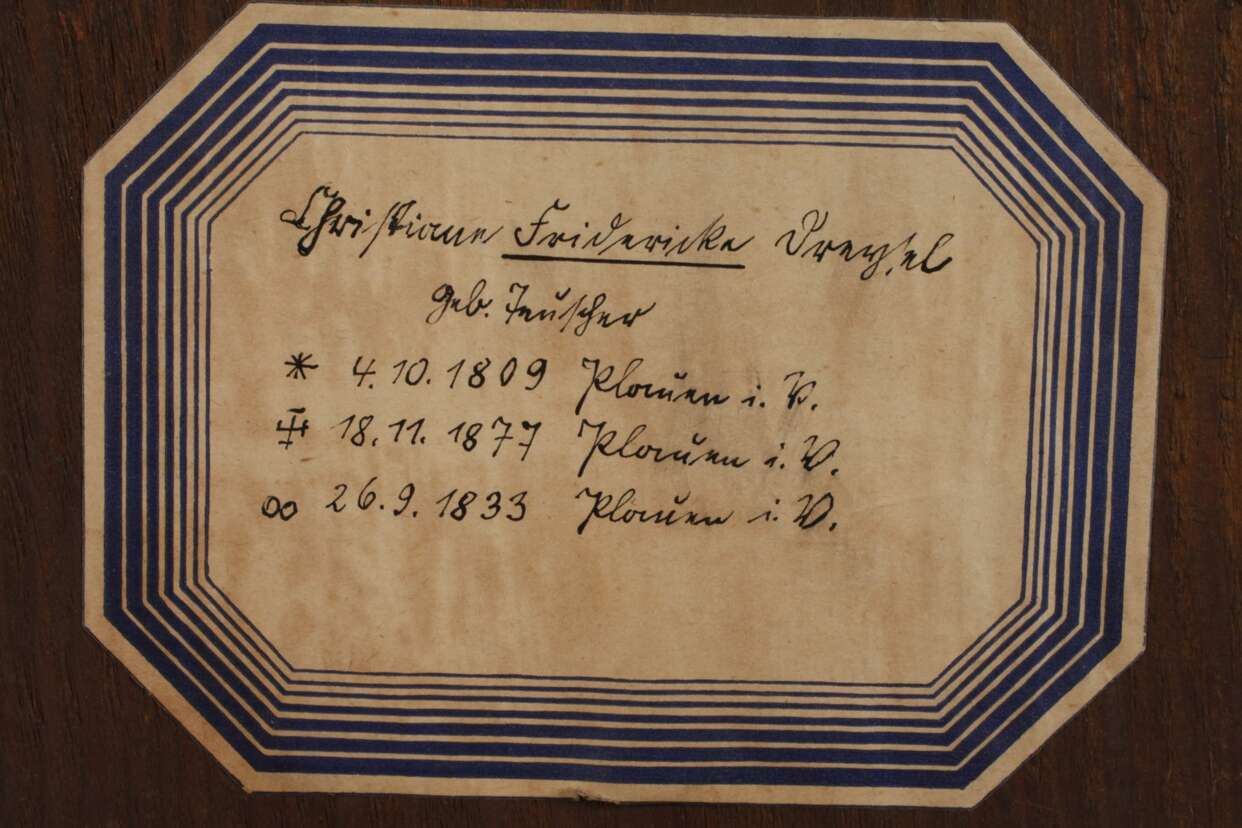 Christiane Fridericke Dreysel
geb. Teuscher
* 4.10.1809 Plauen i. V.
⚒ 18.11.1877 Plauen i. V.
∞ 26.9.1833 Plauen i. V.